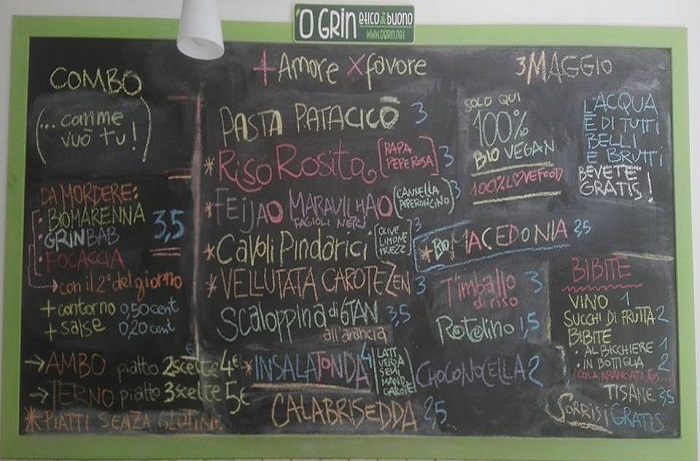 'O GRIN
etico & buono
www.ogrin.net
COMBO
(... comme
vuò tu!)
DA MORDERE:
BOMARENNA
GRINBAB 3,5
FOCACCIA
con il 2° del giorno
+ contorno 0,50 cent
+ salse 0,20 cent
→ AMBO piatto 2 scelte 4€
→ TERNO piatto 3 scelte 5€
* PIATTI SENZA GLUTINE
+ Amore x favore
PASTA PATACICÒ 3
* RISO ROSITA (RAPA PEPE ROSA) 3
* FEIJAO MARAVILHAO (CANNELLA PEPERONCINO) 3
FAGIOLI NERI
* CAVOLI PINDARICI (OLIVE LIMONE PREZZ) 3
* VELLUTATA CAROTEZEN 3
SCALOPPINA di 6TAN 3,5
all'arancia
* INSALATONDA 4
LATT
VERZA
SEMI
MAND
CAROTE
CALABRISEDDA 2,5
3 MAGGIO
SOLO QUI
100%
BIO VEGAN
100% L♥VEFOOD
L'ACQUA
È DI TUTTI
BELLI
E BRUTTI
BEVETE
GRATIS!
* BIO MACEDONIA 2,5
Timballo 3
di riso
Rotolino 1,5
CHOCONOCELLA 2
BIBITE
VINO 1
SUCCHI DI FRUTTA 2
BIBITE
• AL BICCHIERE 1
• IN BOTTIGLIA 2
(COLA, ARANCIATA,
TISANE 3,5
SORRISI GRATIS